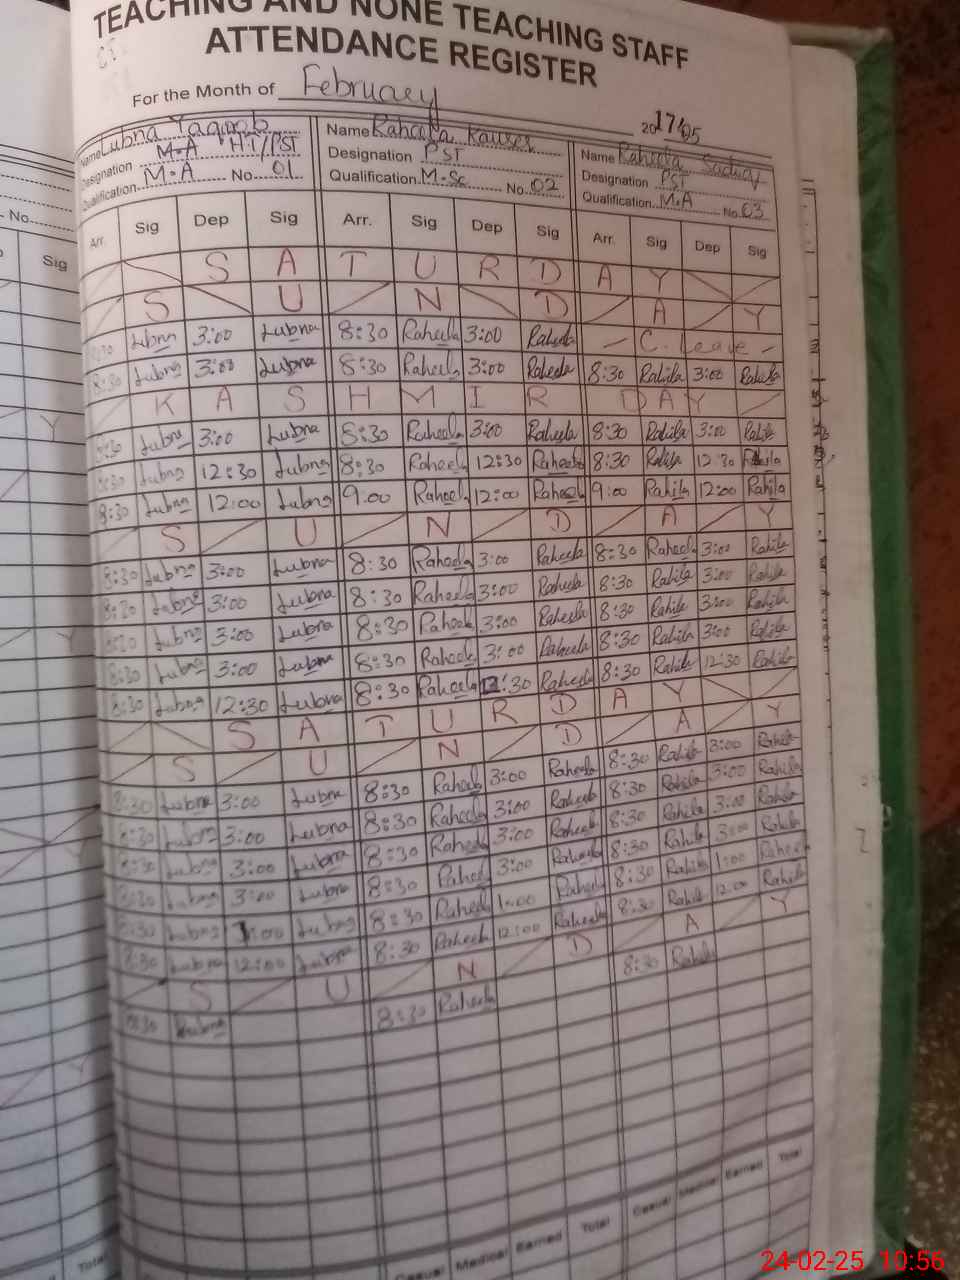 TEACHING AND NONE TEACHING STAFF
ATTENDANCE REGISTER
For the Month of February
2017/05
Name Lubna Yaqoob Name Raheela Kauser Name Raheela
Designation M.A HT/PST Designation PST Designation PST
Qualification M.A No. 01 Qualification M.Sc No. 02 Qualification M.A No. 03
Arr. Sig Dep Sig Arr. Sig Dep Sig Arr. Sig Dep Sig
S A T U R D A Y
S U N D A Y
Lubna 3:00 Lubna 8:30 Raheela 3:00 Raheela - C. Leave -
8:30 Lubna 3:00 Lubna 8:30 Raheela 3:00 Raheela 8:30 Rahila 3:00 Rahila
K A S H M I R D A Y
8:30 Lubna 3:00 Lubna 8:30 Raheela 3:00 Raheela 8:30 Rahila 3:00 Rahila
8:30 Lubna 12:30 Lubna 8:30 Raheela 12:30 Raheela 8:30 Rahila 12:30 Rahila
8:30 Lubna 12:00 Lubna 9:00 Raheela 12:00 Raheela 9:00 Rahila 12:00 Rahila
S U N D A Y
8:30 Lubna 3:00 Lubna 8:30 Raheela 3:00 Raheela 8:30 Raheela 3:00 Rahila
8:30 Lubna 3:00 Lubna 8:30 Raheela 3:00 Raheela 8:30 Rahila 3:00 Rahila
8:30 Lubna 3:00 Lubna 8:30 Raheela 3:00 Raheela 8:30 Rahila 3:00 Rahila
8:30 Lubna 3:00 Lubna 8:30 Raheela 3:00 Raheela 8:30 Rahila 3:00 Rahila
8:30 Lubna 12:30 Lubna 8:30 Raheela 12:30 Raheela 8:30 Rahila 12:30 Rahila
S A T U R D A Y
S U N D A Y
8:30 Lubna 3:00 Lubna 8:30 Raheela 3:00 Raheela 8:30 Rahila 3:00 Rahila
8:30 Lubna 3:00 Lubna 8:30 Raheela 3:00 Raheela 8:30 Rahila 3:00 Rahila
8:30 Lubna 3:00 Lubna 8:30 Raheela 3:00 Raheela 8:30 Rahila 3:00 Rahila
8:30 Lubna 3:00 Lubna 8:30 Raheela 3:00 Raheela 8:30 Rahila 3:00 Rahila
8:30 Lubna 1:00 Lubna 8:30 Raheela 1:00 Raheela 8:30 Rahila 1:00 Raheela
8:30 Lubna 12:00 Lubna 8:30 Raheela 12:00 Raheela 8:30 Rahila 12:00 Rahila
S U N D A Y
8:30 Lubna 8:30 Raheela 8:30 Rahila
Total Casual Medical Earned Total Casual Medical Earned Total
No.
Sig
Y
Y
Y
Y
Y
24-02-25 10:56